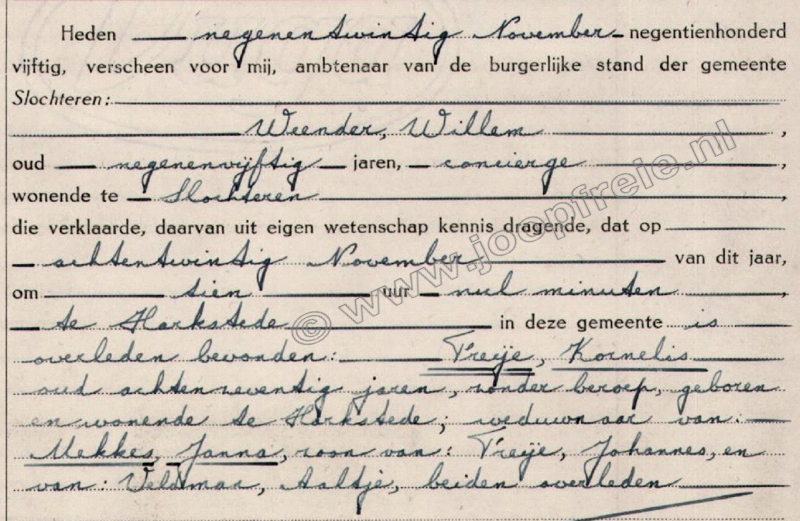 Heden negenentwintig November negentienhonderd
vijftig, verscheen voor mij, ambtenaar van de burgerlijke stand der gemeente
Slochteren:
Weender, Willem ,
oud negenenvijftig jaren, concierge ,
wonende te Slochteren ,
die verklaarde, daarvan uit eigen wetenschap kennis dragende, dat op
achtentwintig November van dit jaar,
om tien uur nul minuten ,
te Harkstede in deze gemeente is
overleden bevonden: Freije, Kornelis
oud achtenzeventig jaren, zonder beroep, geboren
en wonende te Harkstede; weduwnaar van:
Mekkes, Janna, zoon van: Freije, Johannes, en
van: Veldman, Aaltje, beiden overleden
© www.joopfreie.nl